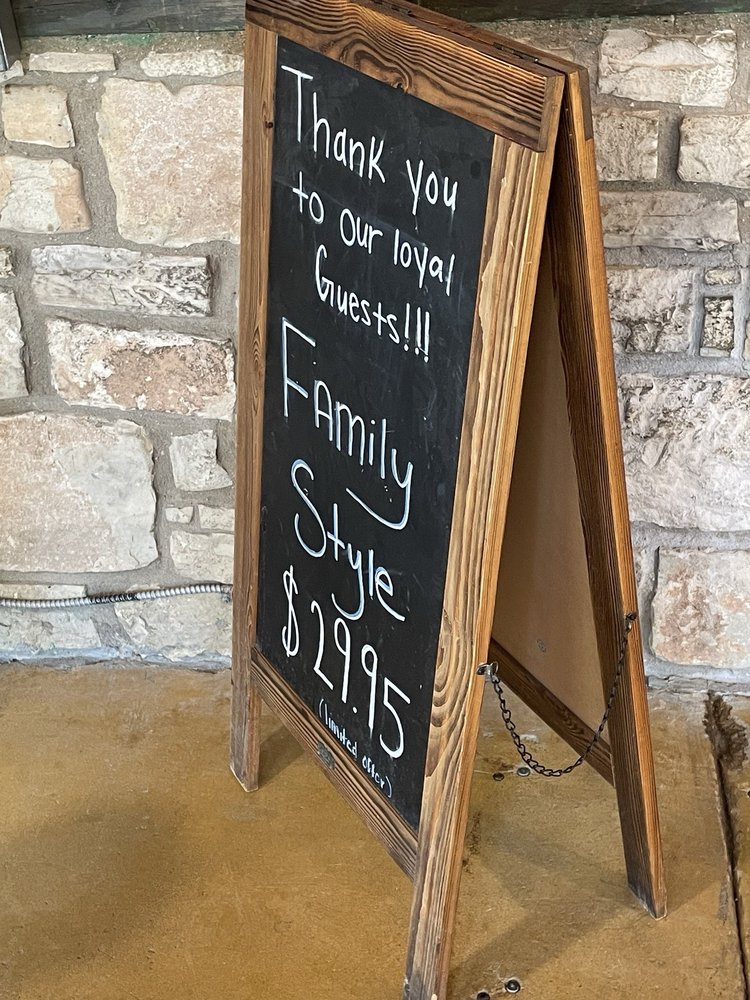 Thank you
to our loyal
Guests!!!
FAmily
Style
$29.95
(limited offer)